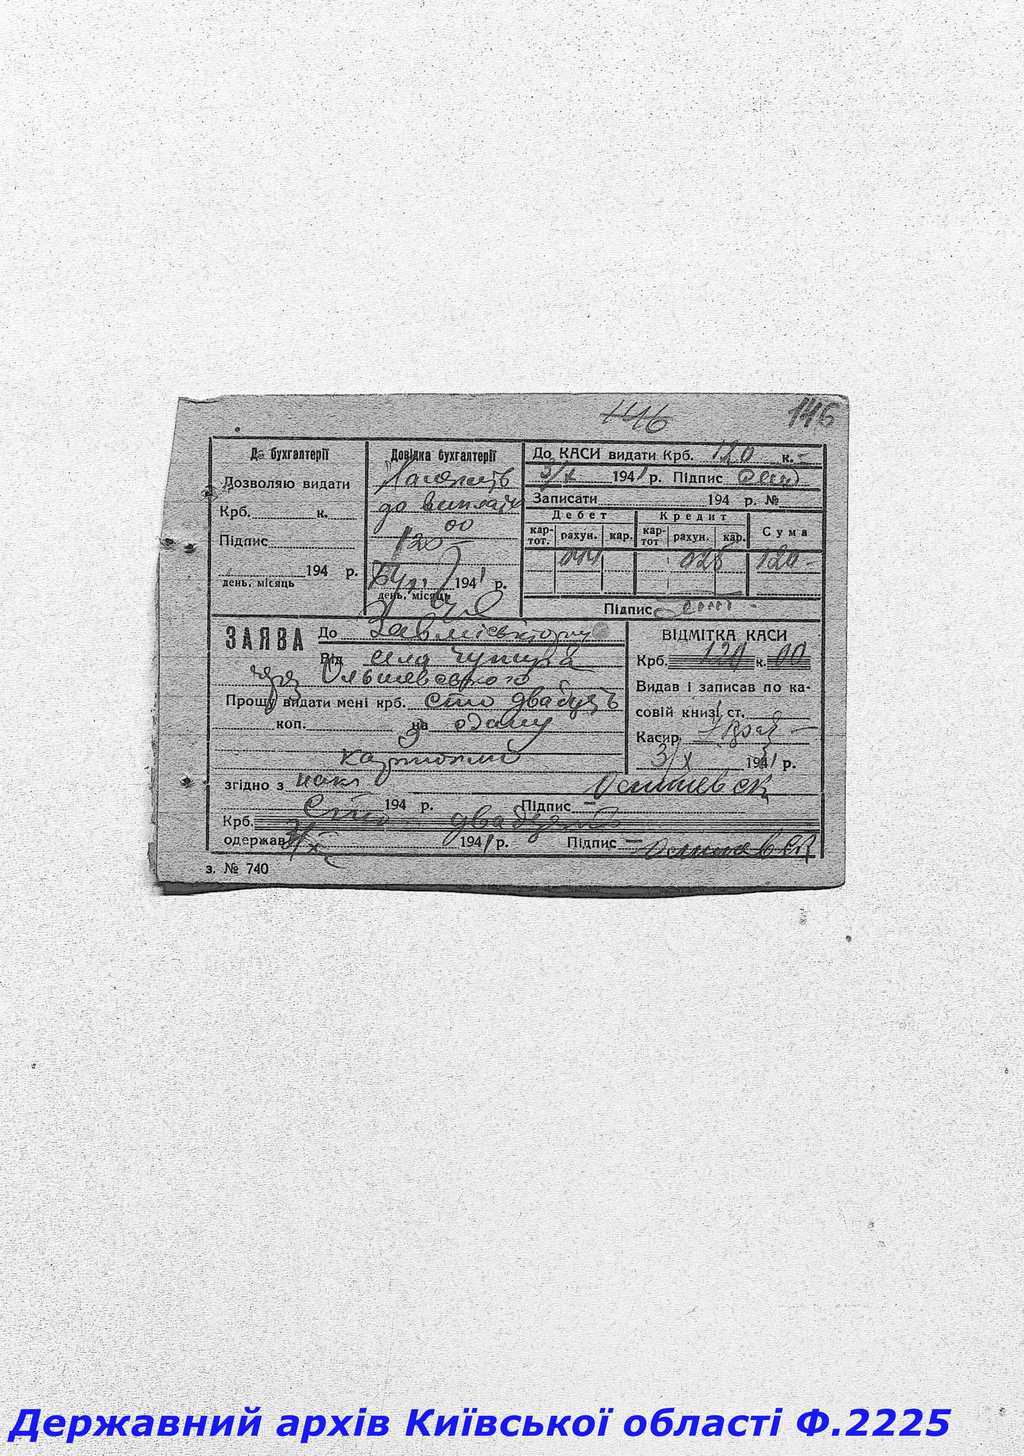 146
146
До бухгалтерії
Дозволяю видати
Крб. к.
Підпис
194 р.
день, місяць
Довідка бухгалтерії
Належить
до виплати
120 00
1941 р.
день, місяць
До КАСИ видати Крб. 120 к. -
3/X 1941 р. Підпис
Записати 194 р. №
Дебет Кредит Сума
кар-тот. рахун. кар. кар-тот рахун. кар.
044 026 120-
Підпис
ЗАЯВА До
Від села
Ольшевського
Прошу видати мені крб. сто двадцять
коп. на здану
картоплю
згідно з
194 р. Підпис
Крб. Сто двадцять
одержав 3/X 1941 р. Підпис
ВІДМІТКА КАСИ
Крб. 120 к. 00
Видав і записав по ка-
совій книзі ст.
Касир
3/X 1941 р.
з. № 740
Державний архів Київської області Ф.2225